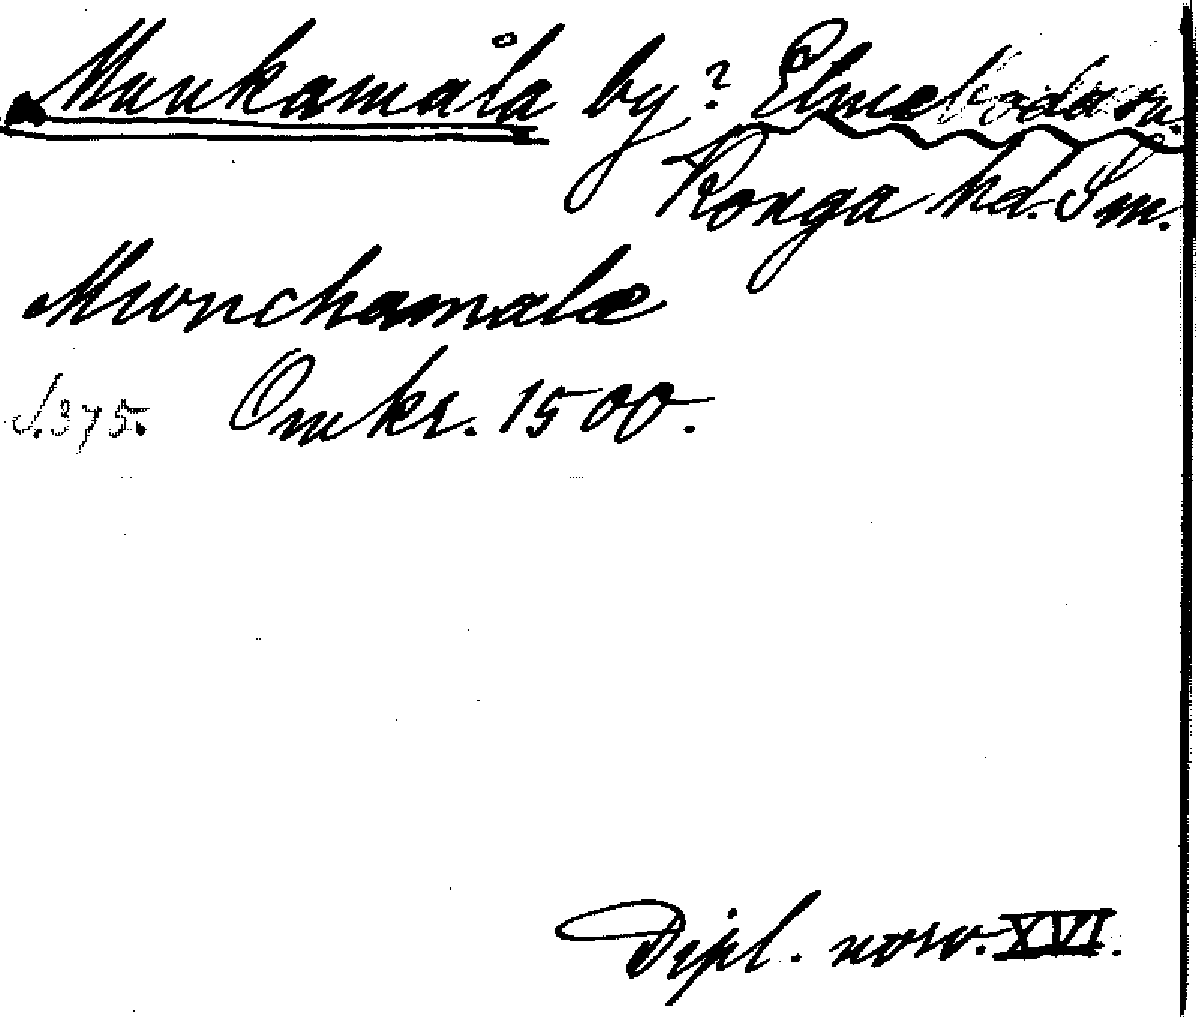 Munkamåla by? Elmeboda sn.
Konga hd. Sm.
Mwnchamalæ
S. 375. Omkr. 1500.
Dipl. norv. XVI.